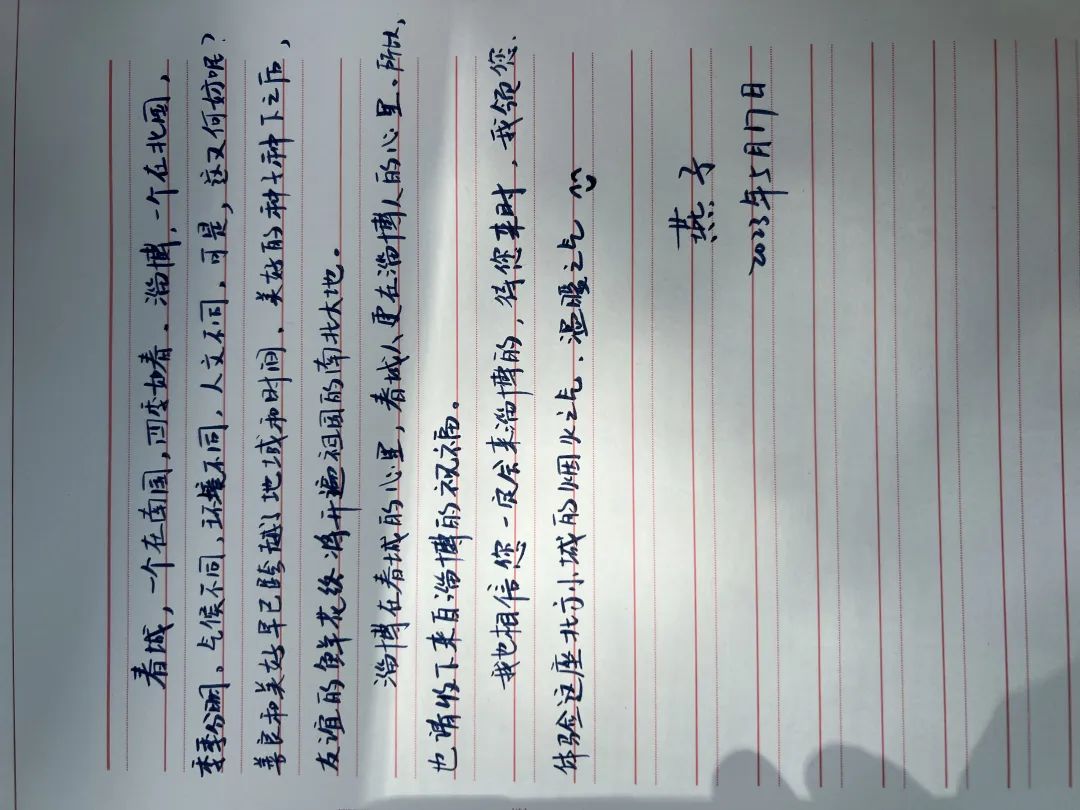 春城，一个在南国，四变如春。淄博，一个在北国，
变季分明。气候不同，环境不同，人文不同，可是，这又何妨呢？
善良和美好早已跨越了地域和时间，美好的种子种下之后，
友谊的鲜花终将开遍祖国的南北大地。
淄博在春城的心里，春城人更在淄博人的心里、所以，
也请收下来自淄博的祝福。
我也相信您一定会来淄博的，待您来时，我领您，
体验这座北方小城的烟火之气、温暖之气
燕子
2023年5月17日